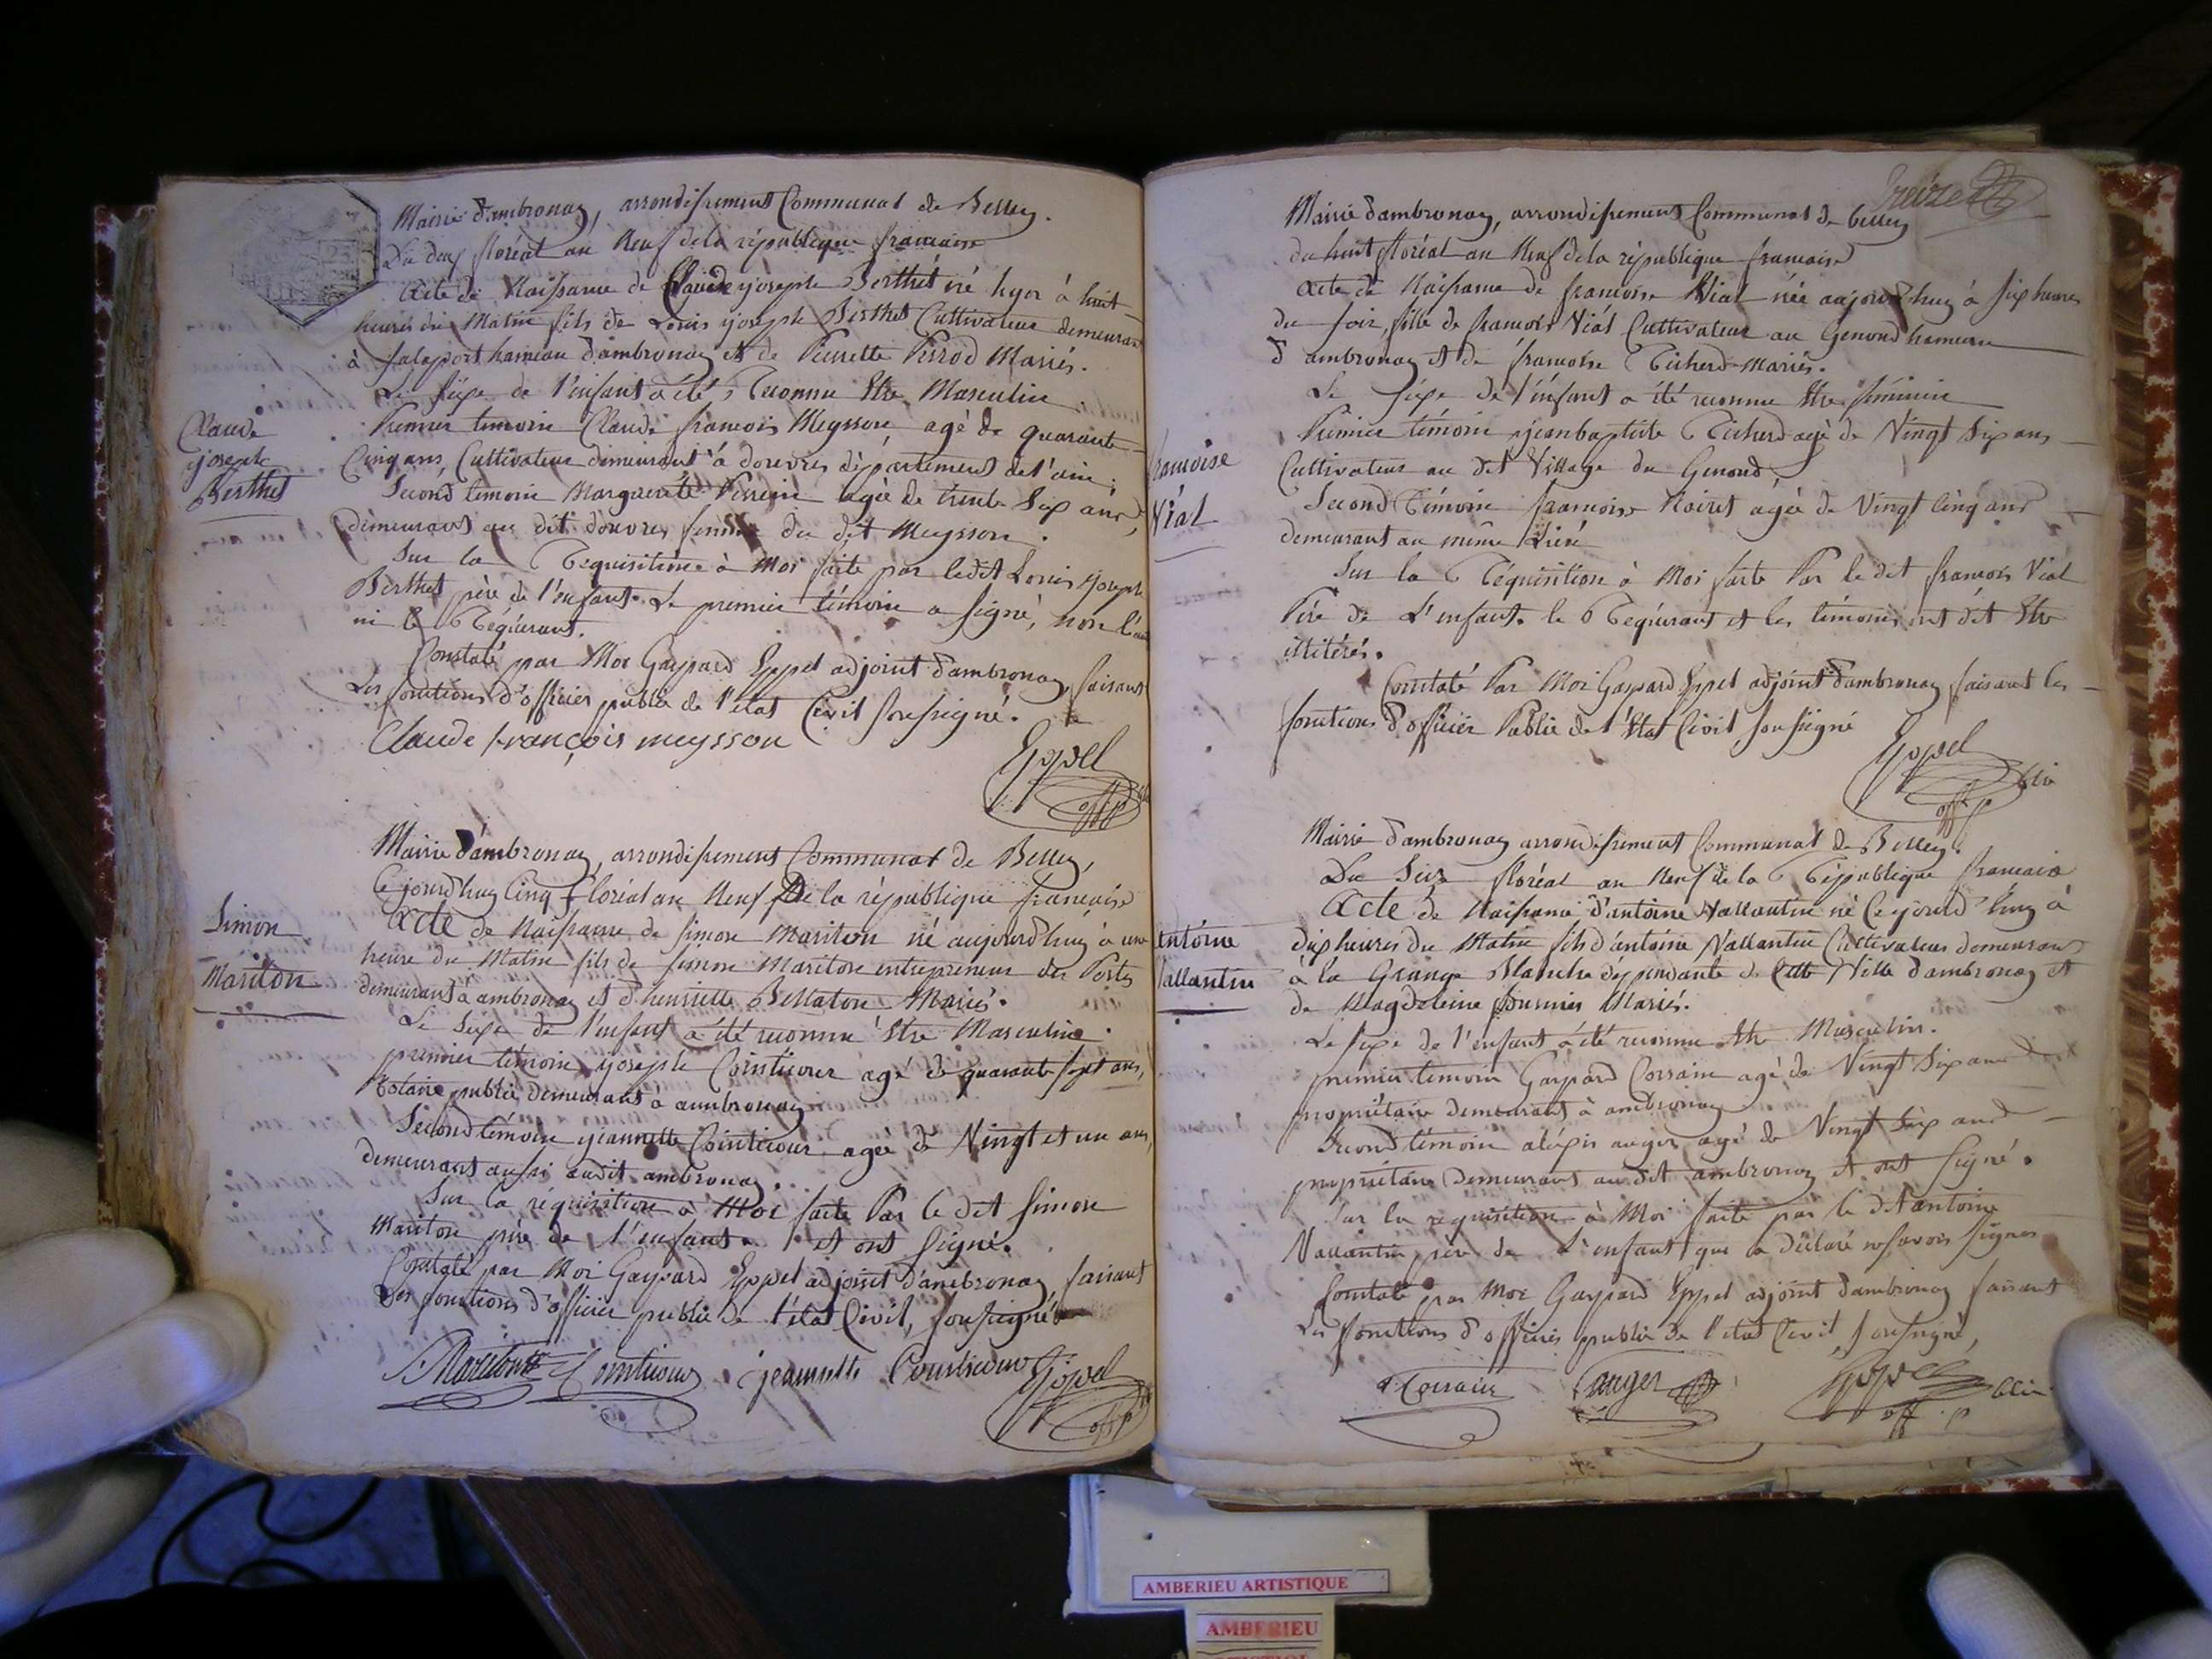 Mairie d'ambronay, arrondissement Communal de Belley.
Du deux floréal an Neuf de la république francaise
Acte de Naissance de Claude yoseph Berthet né hyer à huit
heures du Matin fils de Louis yoseph Berthet Cultivateur demeurant
à salaport hameau d'ambronay et de Pierrette Perrod Mariés.
Le Sexe de l'enfant a été Reconnu Etre Masculin.
Claude
yoseph
Berthet
Premier temoin Claude francois Meysson agé de quarante
Cinq ans, Cultivateur demeurant à douvres département de l'ain.
Second temoin Marguerite agée de trente Six ans,
demeurant au dit douvres femme du dit Meysson.
Sur la Requisition à Moi faite par ledit Louis yoseph
Berthet père de l'enfant. Le premier témoin a signé, non
ni le Requérant.
Constaté par Moi Gaspard Eppel adjoint d'ambronay faisant
Les fonctions d'officier public de l'état Civil soussigné.
Claude françois meysson
Eppel
off p
Mairie d'ambronay, arrondissement Communal de Belley,
Ce jourd'huy Cinq floréal an Neuf De la république francaise
Simon
Mariton
Acte de Naissance de Simon Mariton né aujourd'huy à une
heure du Matin fils de Simon Mariton entrepreneur des Postes
demeurant à ambronay et d'henriette Bellaton Mariés.
Le Sexe de l'enfant a été reconnu Etre Masculin.
premier témoin yoseph Cointicour agé de quarante sept ans,
Notaire public demeurant à ambronay
Second témoin yeannette Cointicour agée de Vingt et un ans,
demeurant aussi audit ambronay.
Sur la réquisition à Moi faite Par le dit Simon
Mariton père de l'enfant. et ont Signé.
Constaté par Moi Gaspard Eppel adjoint d'ambronay faisant
Les fonctions d'officier public de l'état Civil, soussigné
Mariton Cointicour jeannette Cointicour Eppel
off p
treize
Mairie d'ambronay, arrondissement Communal de belley
du huit floréal an Neuf de la république francaise
Acte de Naissance de francoise Vial née aujourd'huy à six heures
du soir, fille de francois Vial Cultivateur au Genoud hameau
d'ambronay et de francoise Ticherd Mariés.
Le Sexe de l'énfant a été reconnu Etre féminin
francoise
Vial
Premier témoin yeanbaptiste Ticherd agé de Vingt Six ans
Cultivateur au dit Village du Genoud
Second Témoin francoise Noiret agée de Vingt Cinq ans
demeurant au même Lieu
Sur la Réquisition à Moi faite Par le dit francois Vial
Père de L'enfant. le Requérant et les témoins ont dit Etre
illitérés.
Constaté Par Moi Gaspard Eppel adjoint d'ambronay faisant les
fonctions d'officier Public de l'Etat Civil soussigné
Eppel
off. p
Mairie d'ambronay arrondissement Communal de Belley.
Du Seize floréal an Neuf de la République francaise
Antoine
Vallantin
Acte de Naissance d'antoine Vallantin né Ce yourd'huy à
dix heures du Matin fils d'antoine Vallantin Cultivateur demeurant
à la Grange Blanche dépendante de Cette Ville d'ambronay et
de Magdeleine fournier Mariés.
Le sexe de l'enfant a été reconnu Etre Masculin.
premier temoin Gaspard Corsain agé de Vingt Six ans
propriétaire demeurant à ambronay
Second témoin aléxis auger agé de Vingt Six ans
propriétaire Demeurant au dit ambronay et ont signé.
Sur la requisition à Moi faite par le dit antoine
Vallantin père de L'enfant que a Déclaré ne savoir signer
Constaté par Moi Gaspard Eppel adjoint d'ambronay faisant
Les fonctions d'officier public de l'etat Civil, soussigné,
Corsain auger Eppel
off. p
AMBERIEU ARTISTIQUE
AMBERIEU